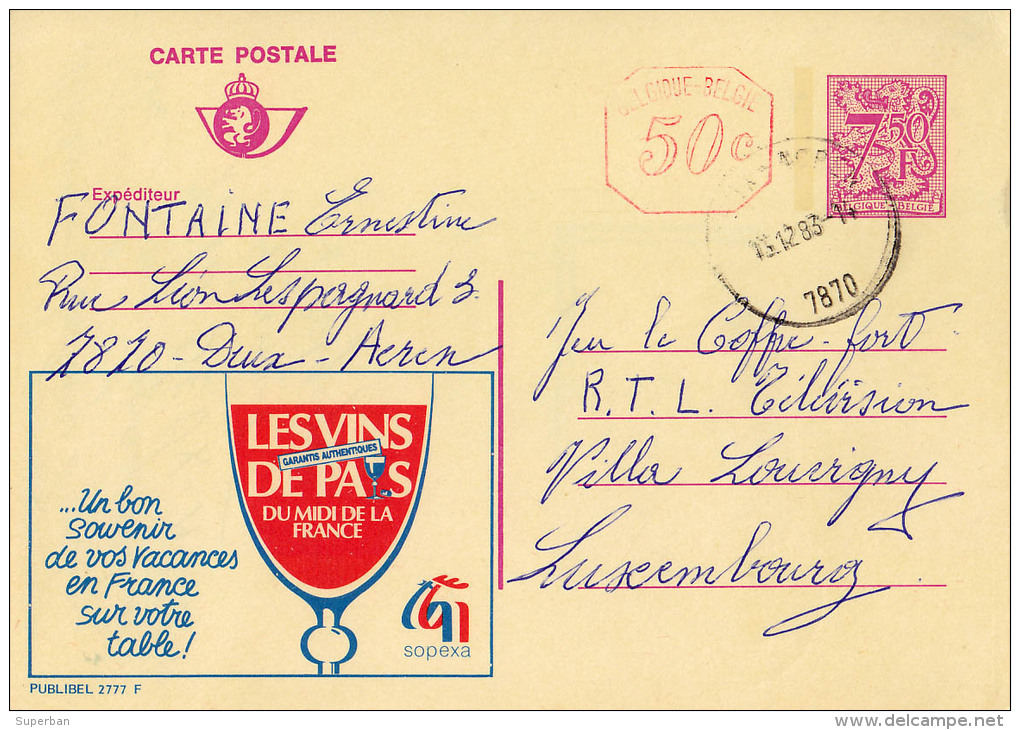 CARTE POSTALE
BELGIQUE-BELGIE
50c
7,50
F
BELGIQUE BELGIË
13.12.83-14
7870
Expéditeur
FONTAINE Ernestine
Rue Léon Lespagnard 3
7870 - Deux - Acren
Jeu le Coffre-fort
R.T.L. Télévision
Villa Louvigny
Luxembourg
LES VINS
GARANTIS AUTHENTIQUES
DE PAYS
DU MIDI DE LA
FRANCE
...Un bon
souvenir
de vos vacances
en France
sur votre
table!
sopexa
PUBLIBEL 2777 F
Superban
delcampe.net